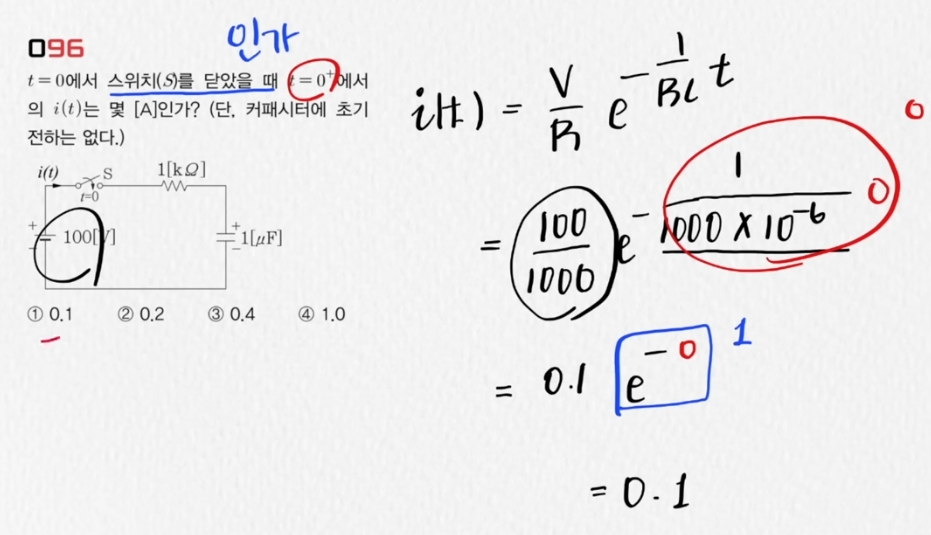 인가
096
t=0에서 스위치(S)를 닫았을 때 t=0⁺에서
의 i(t)는 몇 [A]인가? (단, 커패시터에 초기
전하는 없다.)
i(t) S 1[kΩ]
t=0
+ 100[V] − + 1[μF] −
① 0.1 ② 0.2 ③ 0.4 ④ 1.0
i(t) = V/R e^(-1/RC t)
= 100/1000 e^(-1/(1000 × 10⁻⁶) 0) 0
= 0.1 e^(-0) 1
= 0.1